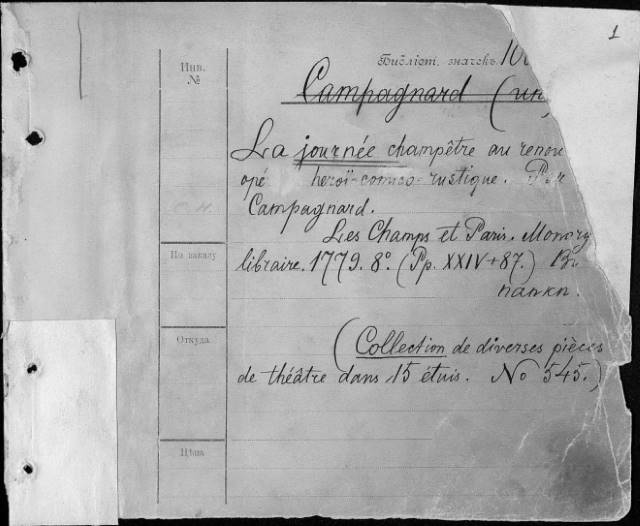 1
Библіот. значекъ. 10
Инв.
№
Campagnard (un
La journée champêtre au renou
opé heroï-comico-rustique. Par
Campagnard.
Les Champs et Paris. Monory
libraire. 1779. 8º. (Pp. XXIV+87.) Въ
папкѣ.
По каталу
(Collection de diverses pièces
de théâtre dans 15 étuis. No 545.)
Откуда
Цѣна